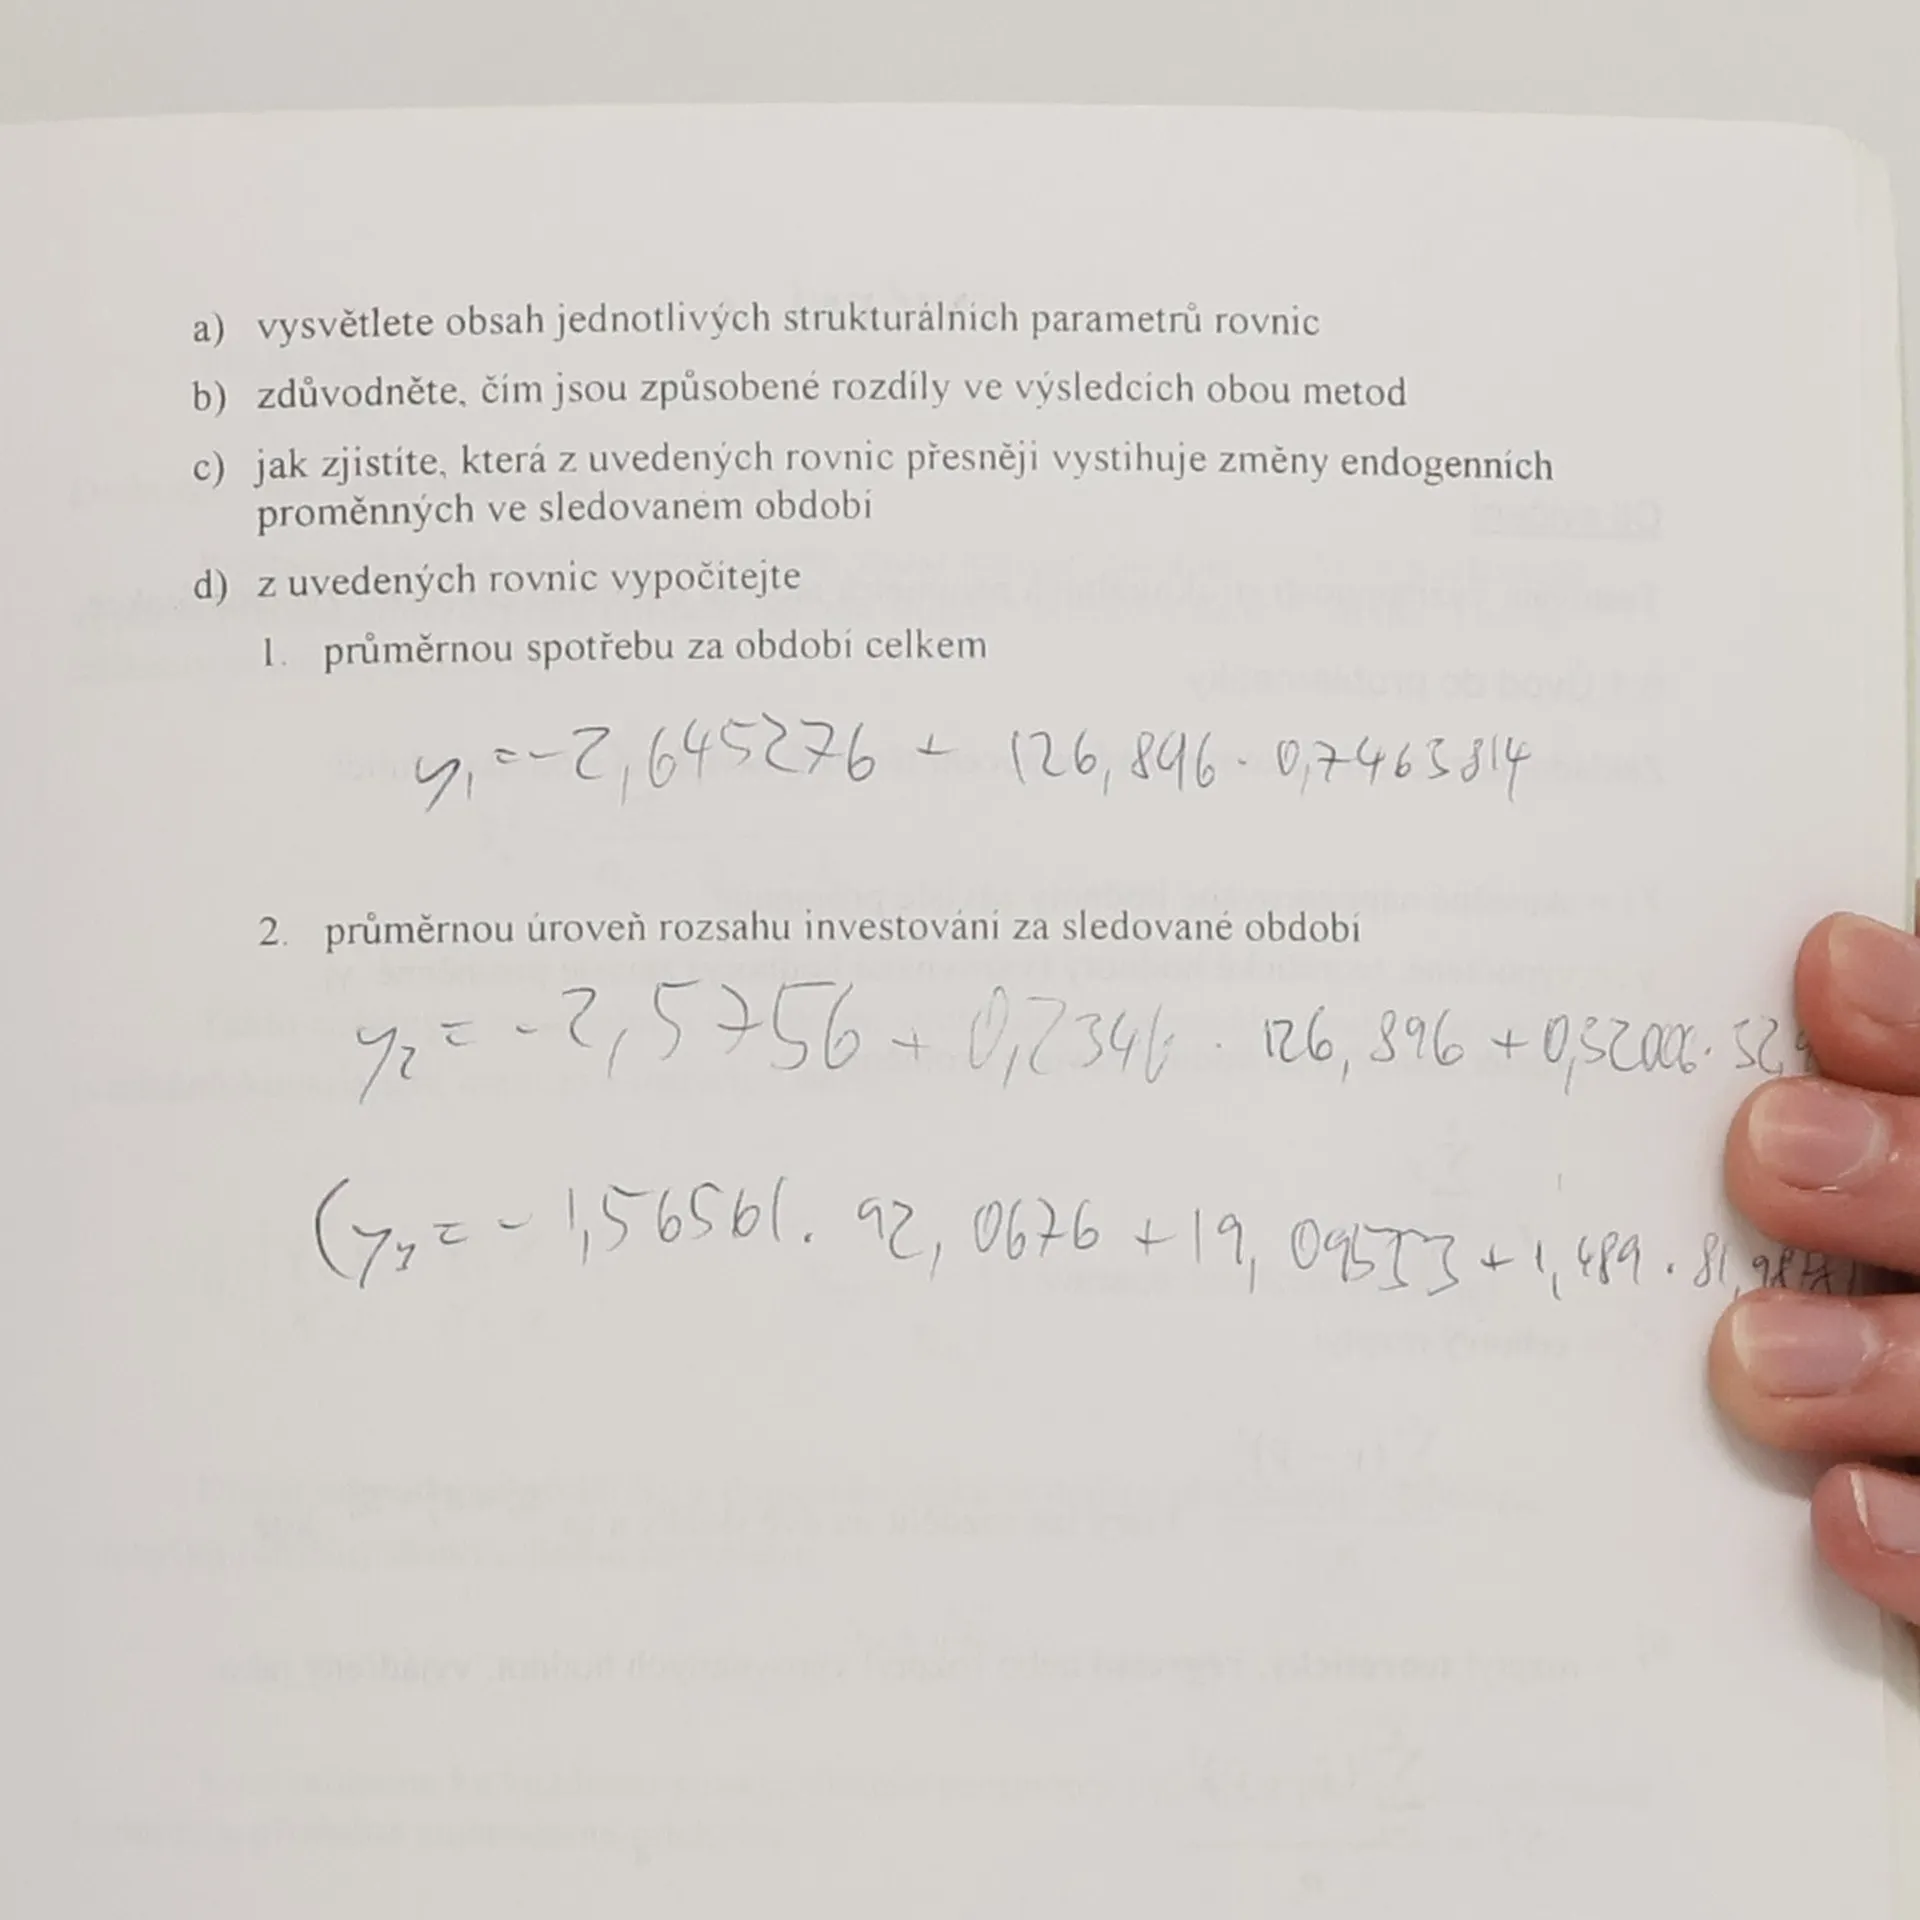 a) vysvětlete obsah jednotlivých strukturálních parametrů rovnic
b) zdůvodněte, čím jsou způsobené rozdíly ve výsledcích obou metod
c) jak zjistíte, která z uvedených rovnic přesněji vystihuje změny endogenních
proměnných ve sledovaném období
d) z uvedených rovnic vypočítejte
1. průměrnou spotřebu za období celkem
y₁ = -2,645276 + 126,896 · 0,7463814
2. průměrnou úroveň rozsahu investování za sledované období
y₂ = -2,5756 + 0,2346 · 126,896 +
= -1,56561 · 92,0676 + 19, + 1,489 ·